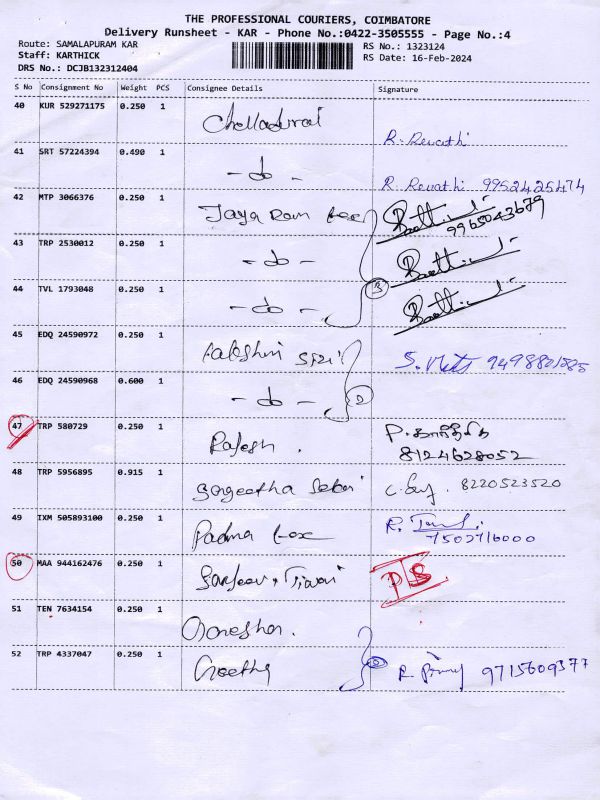 THE PROFESSIONAL COURIERS, COIMBATORE
Delivery Runsheet - KAR - Phone No.:0422-3505555 - Page No.:4
Route: SAMALAPURAM KAR
RS No.: 1323124
Staff: KARTHICK
RS Date: 16-Feb-2024
DRS No.: DCJB132312404
S No Consignment No Weight PCS Consignee Details Signature
40 KUR 529271175 0.250 1 Chelladurai R. Revathi
41 SRT 57224394 0.490 1 - do - R Revathi 9952425474
42 MTP 3066376 0.250 1 Jaya Ram tex 9965043679
43 TRP 2530012 0.250 1 - do -
44 TVL 1793048 0.250 1 - do - 3
45 EDQ 24590972 0.250 1
46 EDQ 24590968 0.600 1 - do - 2
47 TRP 580729 0.250 1 Rajesh . P. கார்த்திக்
8124628052
48 TRP 5956895 0.915 1 Sangeetha 8220523520
49 IXM 505893100 0.250 1 Padma tex
7502716000
50 MAA 944162476 0.250 1 Sanjeev Tiwari DS
51 TEN 7634154 0.250 1
52 TRP 4337047 0.250 1 Geetha 9715609377